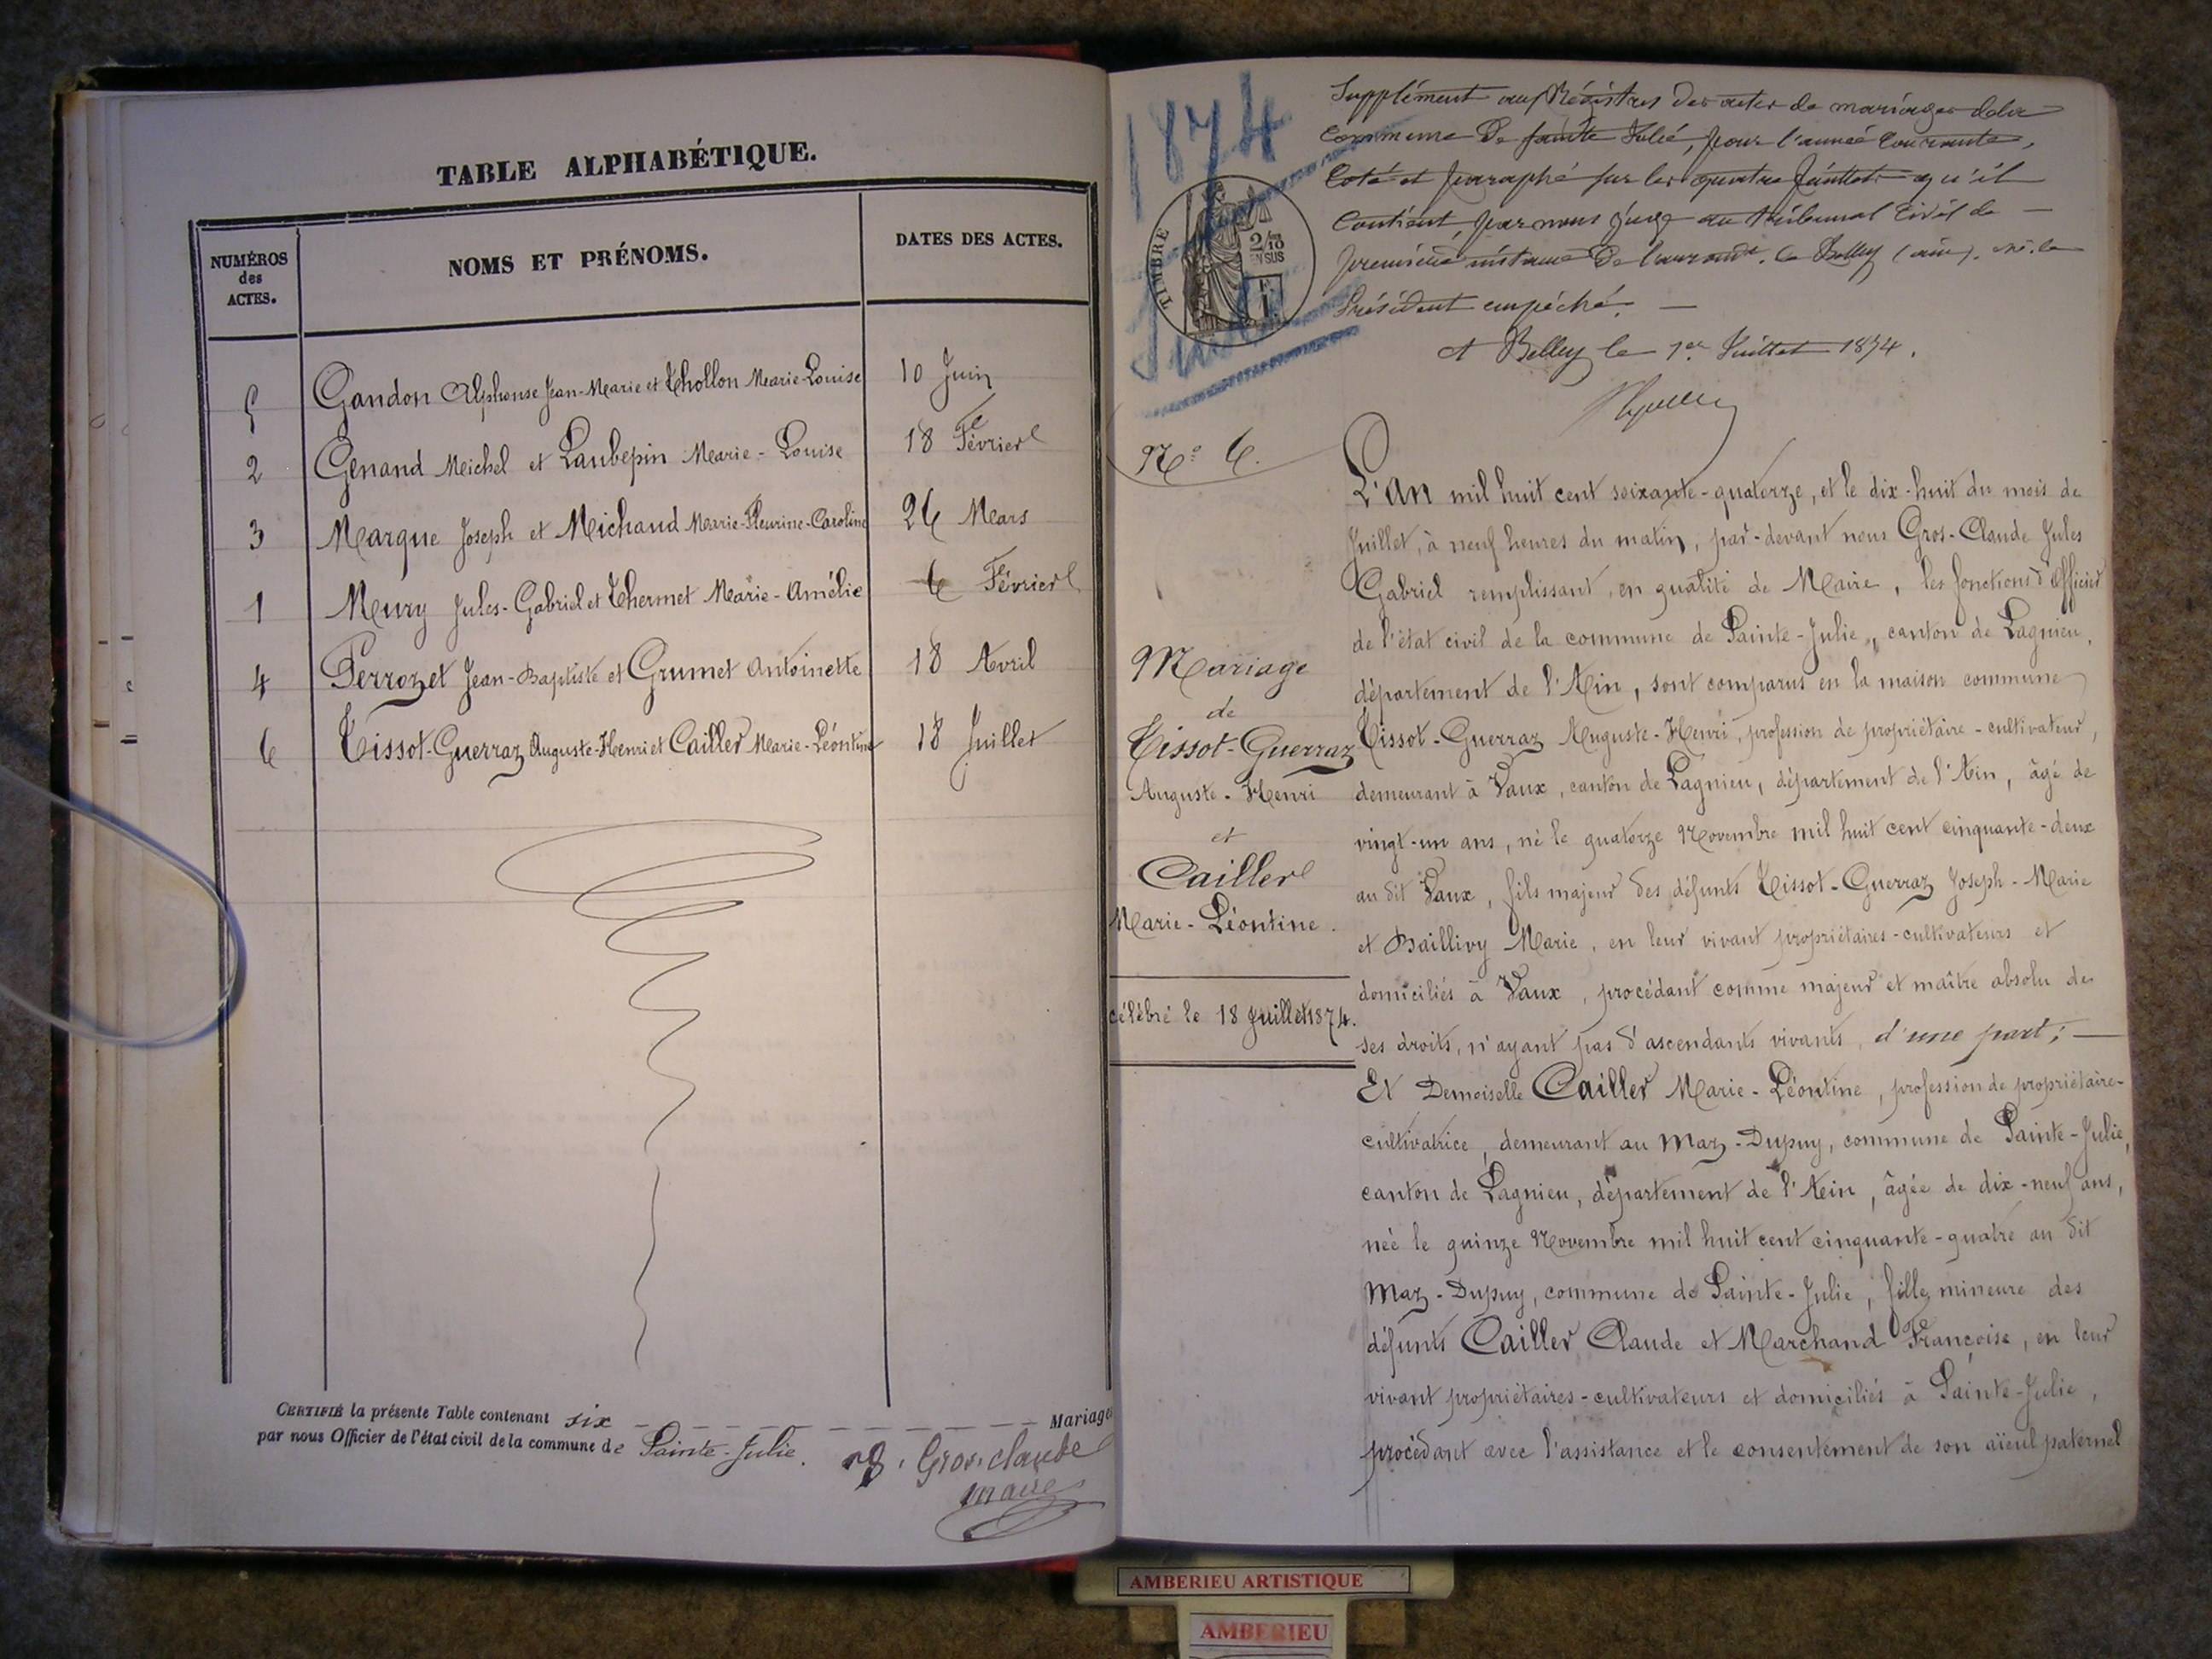 TABLE ALPHABÉTIQUE.
NUMÉROS
des
ACTES.
NOMS ET PRÉNOMS.
DATES DES ACTES.
5 Gandon Alphonse Jean-Marie et Thollon Marie-Louise 10 Juin
2 Genand Michel et Laubepin Marie-Louise 18 Février
3 Marque Joseph et Michaud Marie-Fleurine-Caroline 26 Mars
1 Meury Jules-Gabriel et Thermet Marie-Amélie 6 Février
4 Perrozet Jean-Baptiste et Grumet Antoinette 18 Avril
6 Tissot-Guerraz Auguste-Henri et Cailler Marie-Léontine 18 Juillet
CERTIFIÉ la présente Table contenant six Mariages
par nous Officier de l'état civil de la commune de Sainte-Julie.
Gros-claude
maire
1874
Supplément aux Régistres des actes de mariages de la
commune de Sainte Julie, pour l'année courante,
Coté et paraphé sur les quatre feuillets qu'il
Contient, par nous juge au tribunal Civil de
première instance de l'arrondt. de Belley (ain). Mr. le
Président empéché.
A Belley le 1er Juillet 1874.
TIMBRE
2/10
EN SUS
F
1
No 6.
Mariage
de
Tissot-Guerraz
Auguste-Henri
et
Cailler
Marie-Léontine.
célébré le 18 Juillet 1874.
L'an mil huit cent soixante-quatorze, et le dix-huit du mois de
Juillet, à neuf heures du matin, par-devant nous Gros-Claude Jules
Gabriel remplissant, en qualité de Maire, les fonctions d'Officier
de l'état civil de la commune de Sainte-Julie, canton de Lagnieu,
département de l'Ain, sont comparus en la maison commune
Tissot-Guerraz Auguste-Henri, profession de propriétaire-cultivateur,
demeurant à Vaux, canton de Lagnieu, département de l'Ain, âgé de
vingt-un ans, né le quatorze Novembre mil huit cent cinquante-deux
au dit Vaux, fils majeur des défunts Tissot-Guerraz Joseph-Marie
et Baillivy Marie, en leur vivant propriétaires-cultivateurs et
domiciliés à Vaux, procédant comme majeur et maître absolu de
ses droits, n'ayant pas d'ascendants vivants, d'une part;
Et Demoiselle Cailler Marie-Léontine, profession de propriétaire-
cultivatrice, demeurant au Maz-Dupuy, commune de Sainte-Julie,
canton de Lagnieu, département de l'Ain, âgée de dix-neuf ans,
née le quinze Novembre mil huit cent cinquante-quatre au dit
Maz-Dupuy, commune de Sainte-Julie, fille mineure des
défunts Cailler Claude et Marchand Françoise, en leur
vivant propriétaires-cultivateurs et domiciliés à Sainte-Julie,
procédant avec l'assistance et le consentement de son aïeul paternel
AMBERIEU ARTISTIQUE
AMBERIEU